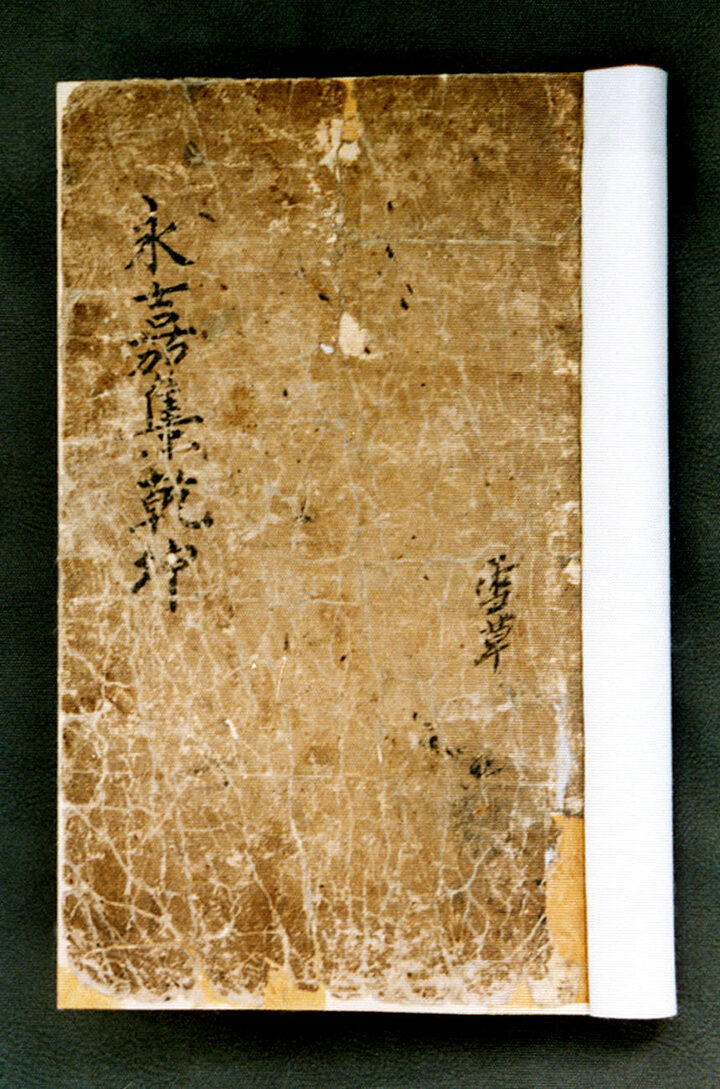 雪草
永嘉集乾坤